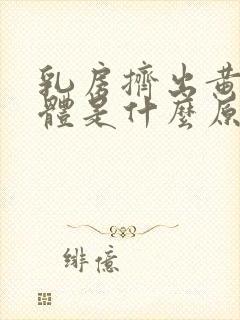 乳房擠出黃
體是什麼原
緋憶